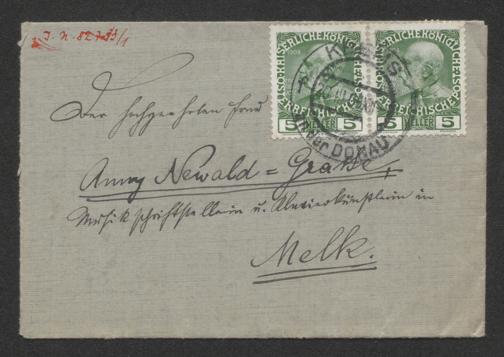 J. N. 82783/1
KAISERLICHE KÖNIGLICHE
ÖSTERREICHISCHE
5 HELLER 5
KAISERLICHE KÖNIGLICHE
ÖSTERREICHISCHE
5 HELLER 5
1908
KREMS
an der DONAU
Der hochgeehrten Frau
Anny Newald = Grasse,
Musikschriftstellerin u. Klavierkünstlerin in
Melk.